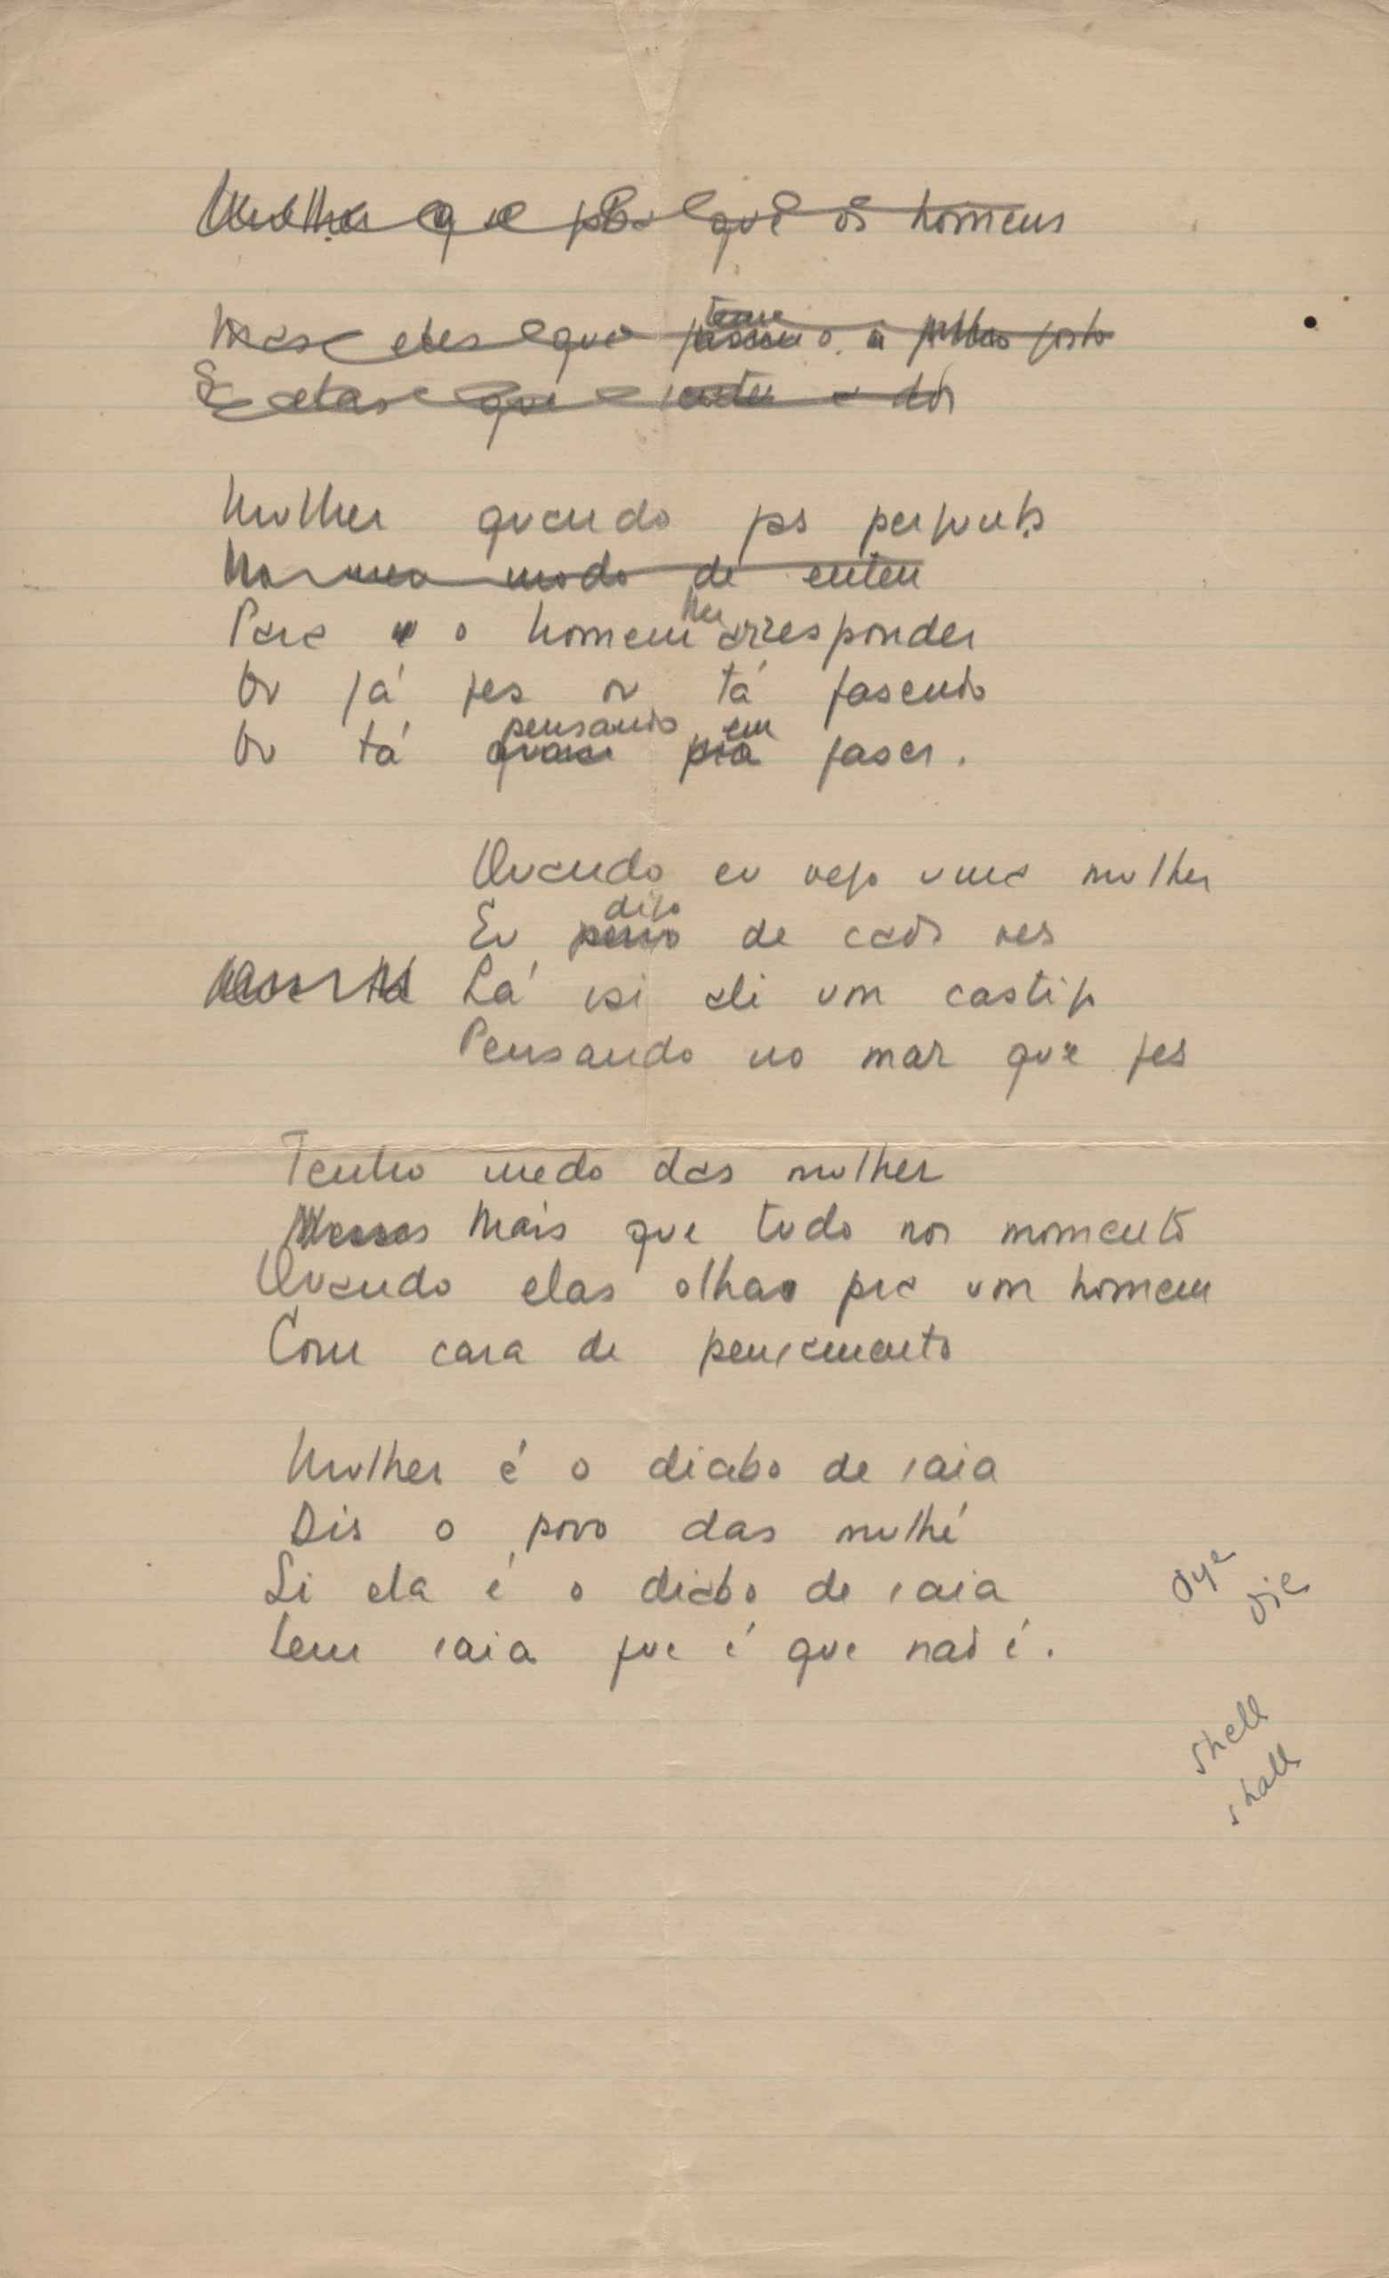 Mulher que por que os homens
Mas eles que tem o melhor gosto
E elas que a dôr
Mulher quando fas pergunta
No meu modo de enten
Para o homem lhe arresponder
Ou já fes ou tá fasendo
Ou tá pensando em faser.
Quando eu vejo uma mulher
Eu digo de cada ves
Lá vai ali um castigo
Pensando no mar que fes
Tenho medo das mulher
Mais que tudo nos momento
Quando elas olha pra um homem
Com cara de pensamento
Mulher é o diabo de saia
Dis o povo das mulhé
Si ela é o diabo de saia
Sem saia que é que não é.
Oye
Oie
shell
shall